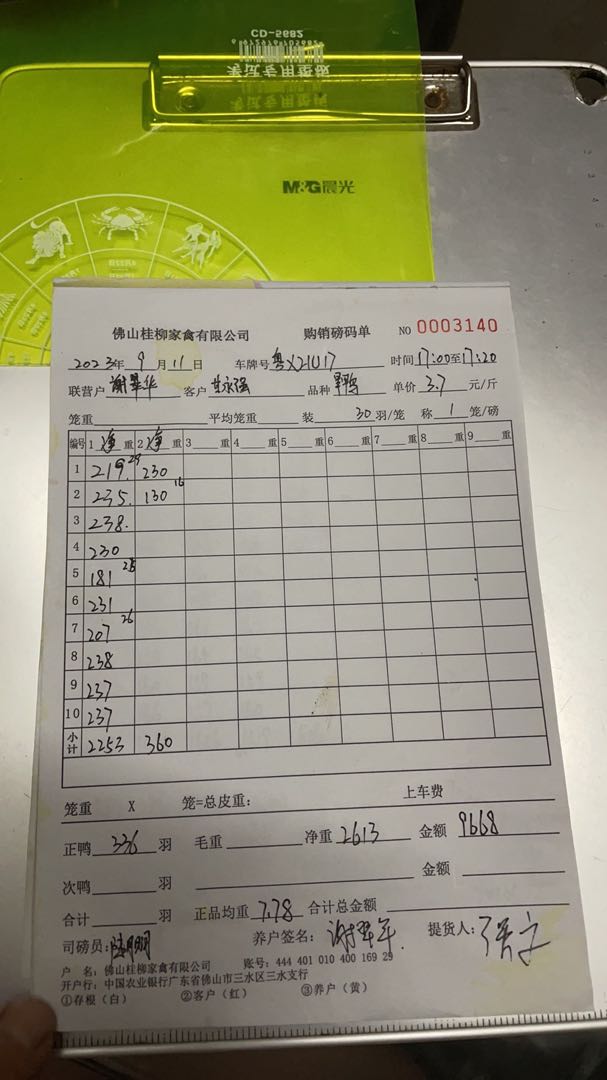 CD-5682
M&G晨光
佛山桂柳家禽有限公司 购销磅码单 NO 0003140
2023年9月11日 车牌号粤X21U17 时间17:00至17:20
联营户谢翠华 客户 品种 单价3.7元/斤
笼重 平均笼重 装30羽/笼 称1笼/磅
编号 1净重 2净重 3重 4重 5重 6重 7重 8重 9重
1 219.29 230
2 235. 130 16
3 238.
4 230
5 181 23
6 231
7 207 26
8 238
9 237
10 237
小计 2253 360
笼重 X 笼=总皮重: 上车费
正鸭336羽 毛重 净重2613 金额9668
次鸭 羽 金额
合计 羽 正品均重7.78 合计总金额
司磅员: 养户签名: 提货人:
户 名:佛山桂柳家禽有限公司 账号:444 401 010 400 169 29
开户行:中国农业银行广东省佛山市三水区三水支行
①存根(白) ②客户(红) ③养户(黄)